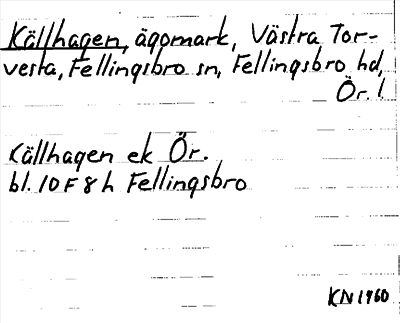 Källhagen, ägomark, Västra Tor-
vesta, Fellingsbro sn, Fellingsbro hd,
Ör. l
Källhagen ek Ör.
bl. 10 F 8 h Fellingsbro
KN 1960